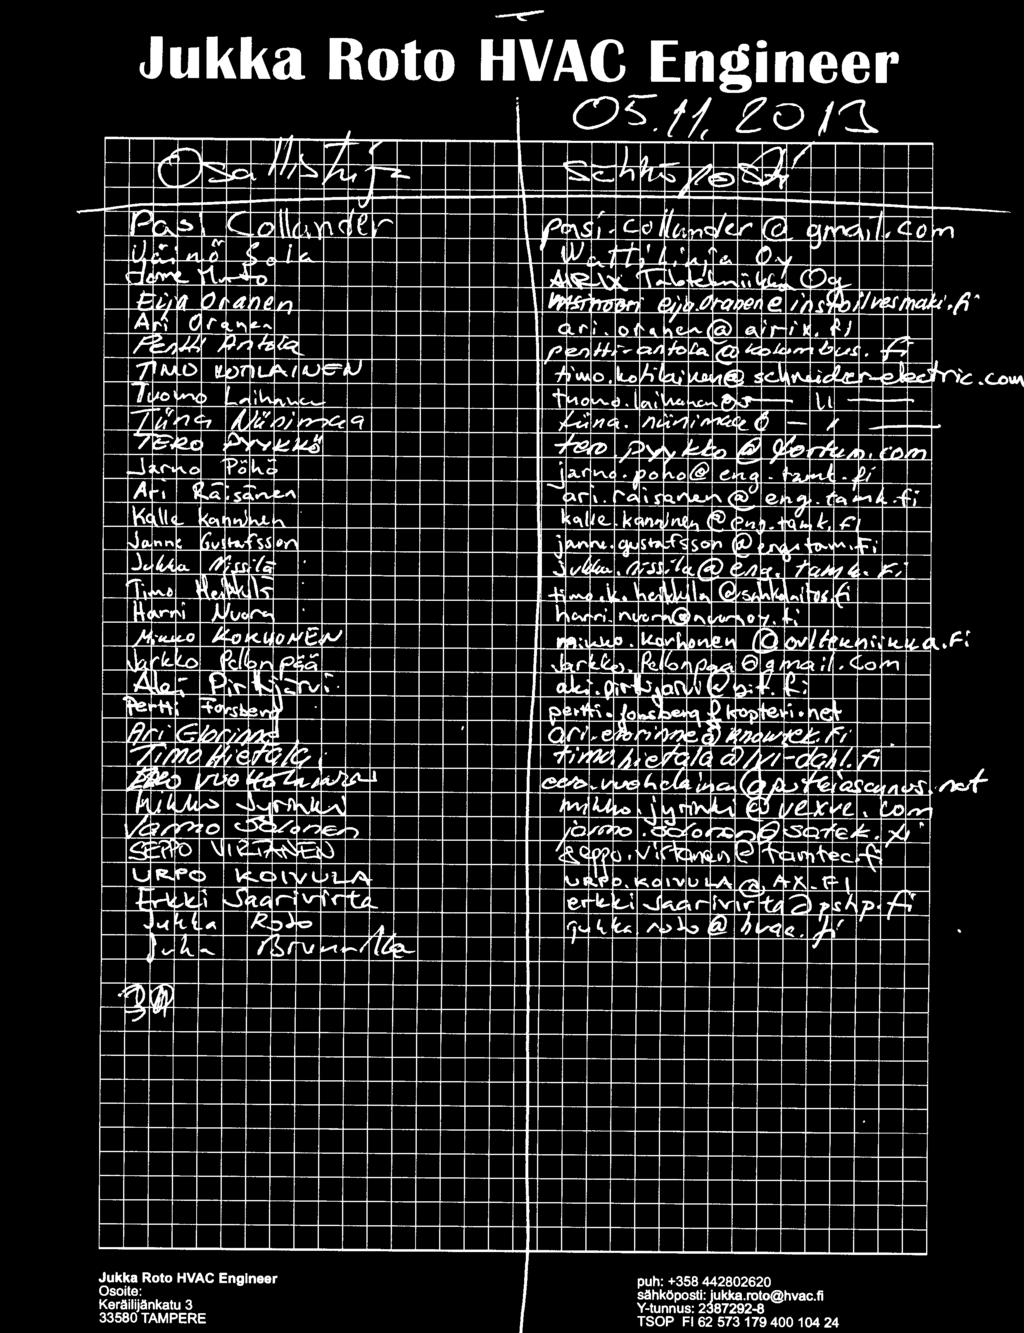 Jukka Roto HVAC Engineer
05.11.2013
Osallistuja sähköposti
Pasi Collander pasi.collander@gmail.com
Väinö Sola Wattilinja Oy
Talotekniikka Oy
Eija Oranen eija.oranen@
Ari Oranen ari.oranen@airix.fi
Pentti Antola pentti.antola@kolumbus.fi
TIMO KOTILAINEN timo.kotilainen@schneider-electric.com
Tuomo Laihanen tuomo.laihanen@ — 11 —
Tiina Niinimaa tiina.niinimaa@ —
TERO PYYKKÖ tero.pyykko@fortum.com
Jarno Pöhö jarno.poho@eng.tamk.fi
Ari Räisänen ari.raisanen@eng.tamk.fi
Kalle Kanninen kalle.kanninen@eng.tamk.fi
Janne Gustafsson janne.gustafsson@
Jukka Nissilä jukka.nissila@eng.tamk.fi
Timo Heikkilä timo.k.heikkila@sahkolaitos.fi
Harri Nuora harri.nuora@nuoraoy.fi
Mikko KORHONEN mikko.korhonen@
Jarkko Pellonpää Jarkko.Pellonpaa@gmail.com
Aki Pirkjärvi aki.pirkjarvi@
Pertti Forsberg pertti.forsberg@kopteri.net
Ari Elorinne ari.elorinne@knowtek.fi
Timo Hietala timo.hietala@lvi-dahl.fi
EERO VUOHELAINEN eero.vuohelainen@
Mikko Jyrinki mikko.jyrinki@vexve.com
Jarmo Solonen jarmo.solonen@satek.fi
SEPPO VIRTANEN seppo.virtanen@tamtec.fi
URPO KOIVULA URPO.KOIVULA@AX.FI
Erkki Saarivirta erkki.saarivirta@pshp.fi
Jukka Roto jukka.roto@hvac.fi
Juha
Jukka Roto HVAC Engineer
Osoite:
Keräilijänkatu 3
33580 TAMPERE
puh: +358 442802620
sähköposti: jukka.roto@hvac.fi
Y-tunnus: 2387292-8
TSOP FI 62 573 179 400 104 24